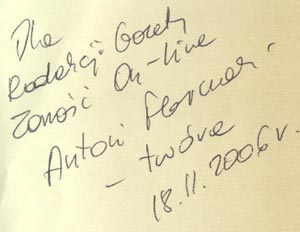 Dla
Redakcji Gazety
Zamość On-line
Antoni
- twórca
18.11.2006 r.